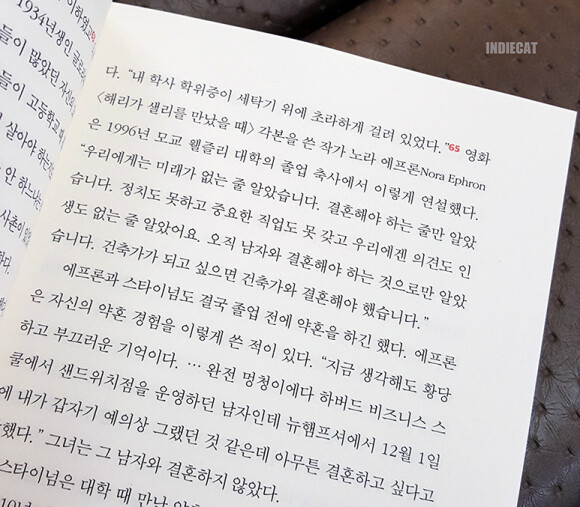 INDIECAT
1934년생인 글로
들이 많았던 자신의
들이 고등학교 때
살아야 하는
안 하느냐
사촌이
다. “내 학사 학위증이 세탁기 위에 초라하게 걸려 있었다.”65 영화
〈해리가 샐리를 만났을 때〉 각본을 쓴 작가 노라 에프론Nora Ephron
은 1996년 모교 웰즐리 대학의 졸업 축사에서 이렇게 연설했다.
“우리에게는 미래가 없는 줄 알았습니다. 결혼해야 하는 줄만 알았
습니다. 정치도 못하고 중요한 직업도 못 갖고 우리에겐 의견도 인
생도 없는 줄 알았어요. 오직 남자와 결혼해야 하는 것으로만 알았
습니다. 건축가가 되고 싶으면 건축가와 결혼해야 했습니다.”
에프론과 스타이넘도 결국 졸업 전에 약혼을 하긴 했다. 에프론
은 자신의 약혼 경험을 이렇게 쓴 적이 있다. “지금 생각해도 황당
하고 부끄러운 기억이다. … 완전 멍청이에다 하버드 비즈니스 스
쿨에서 샌드위치점을 운영하던 남자인데 뉴햄프셔에서 12월 1일
에 내가 갑자기 예의상 그랬던 것 같은데 아무튼 결혼하고 싶다고
했다.” 그녀는 그 남자와 결혼하지 않았다.
스타이넘은 대학 때 만난